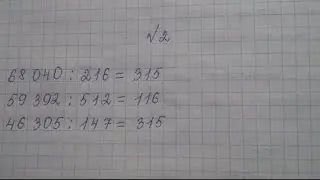 √2
68 040 : 216 = 315
59 392 : 512 = 116
46 305 : 147 = 315